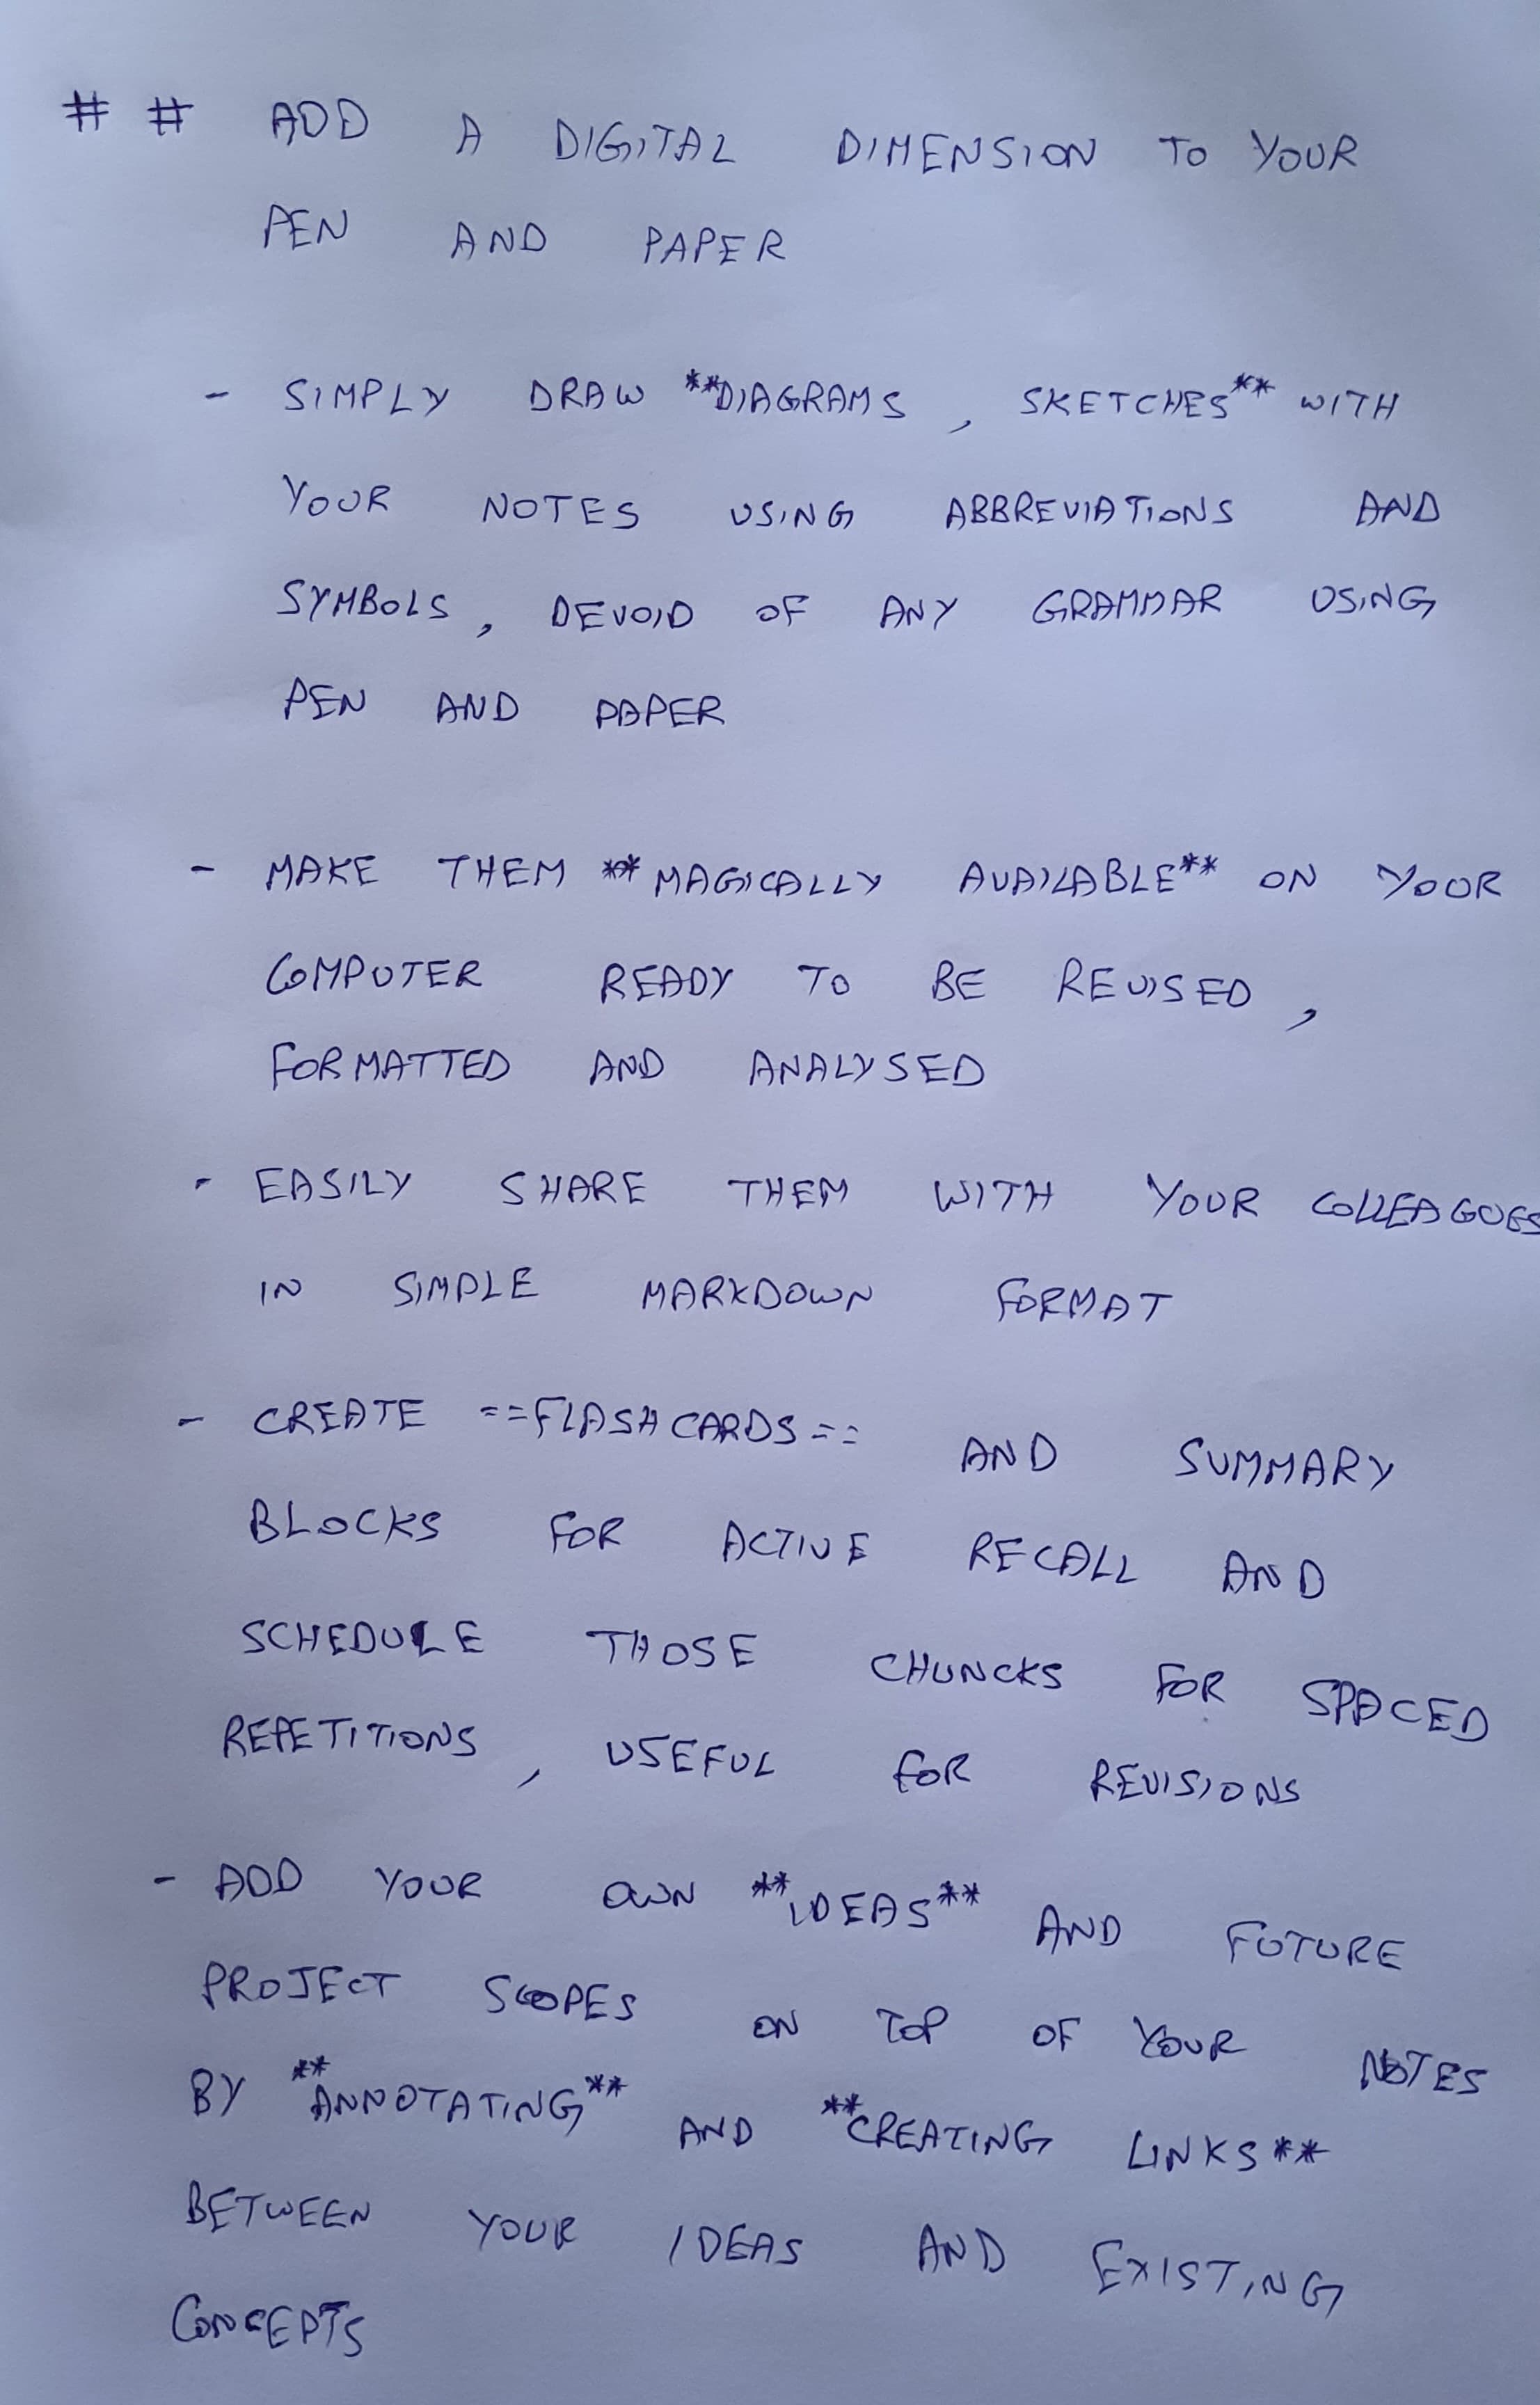 # # ADD A DIGITAL DIMENSION TO YOUR
PEN AND PAPER
- SIMPLY DRAW **DIAGRAMS, SKETCHES** WITH
YOUR NOTES USING ABBREVIATIONS AND
SYMBOLS, DEVOID OF ANY GRAMMAR USING
PEN AND PAPER
- MAKE THEM **MAGICALLY AVAILABLE** ON YOUR
COMPUTER READY TO BE REVISED,
FORMATTED AND ANALYSED
- EASILY SHARE THEM WITH YOUR COLLEAGUES
IN SIMPLE MARKDOWN FORMAT
- CREATE ==FLASHCARDS== AND SUMMARY
BLOCKS FOR ACTIVE RECALL AND
SCHEDULE THOSE CHUNCKS FOR SPACED
REPETITIONS, USEFUL FOR REVISIONS
- ADD YOUR OWN **IDEAS** AND FUTURE
PROJECT SCOPES ON TOP OF YOUR NOTES
BY **ANNOTATING** AND **CREATING LINKS**
BETWEEN YOUR IDEAS AND EXISTING
CONCEPTS